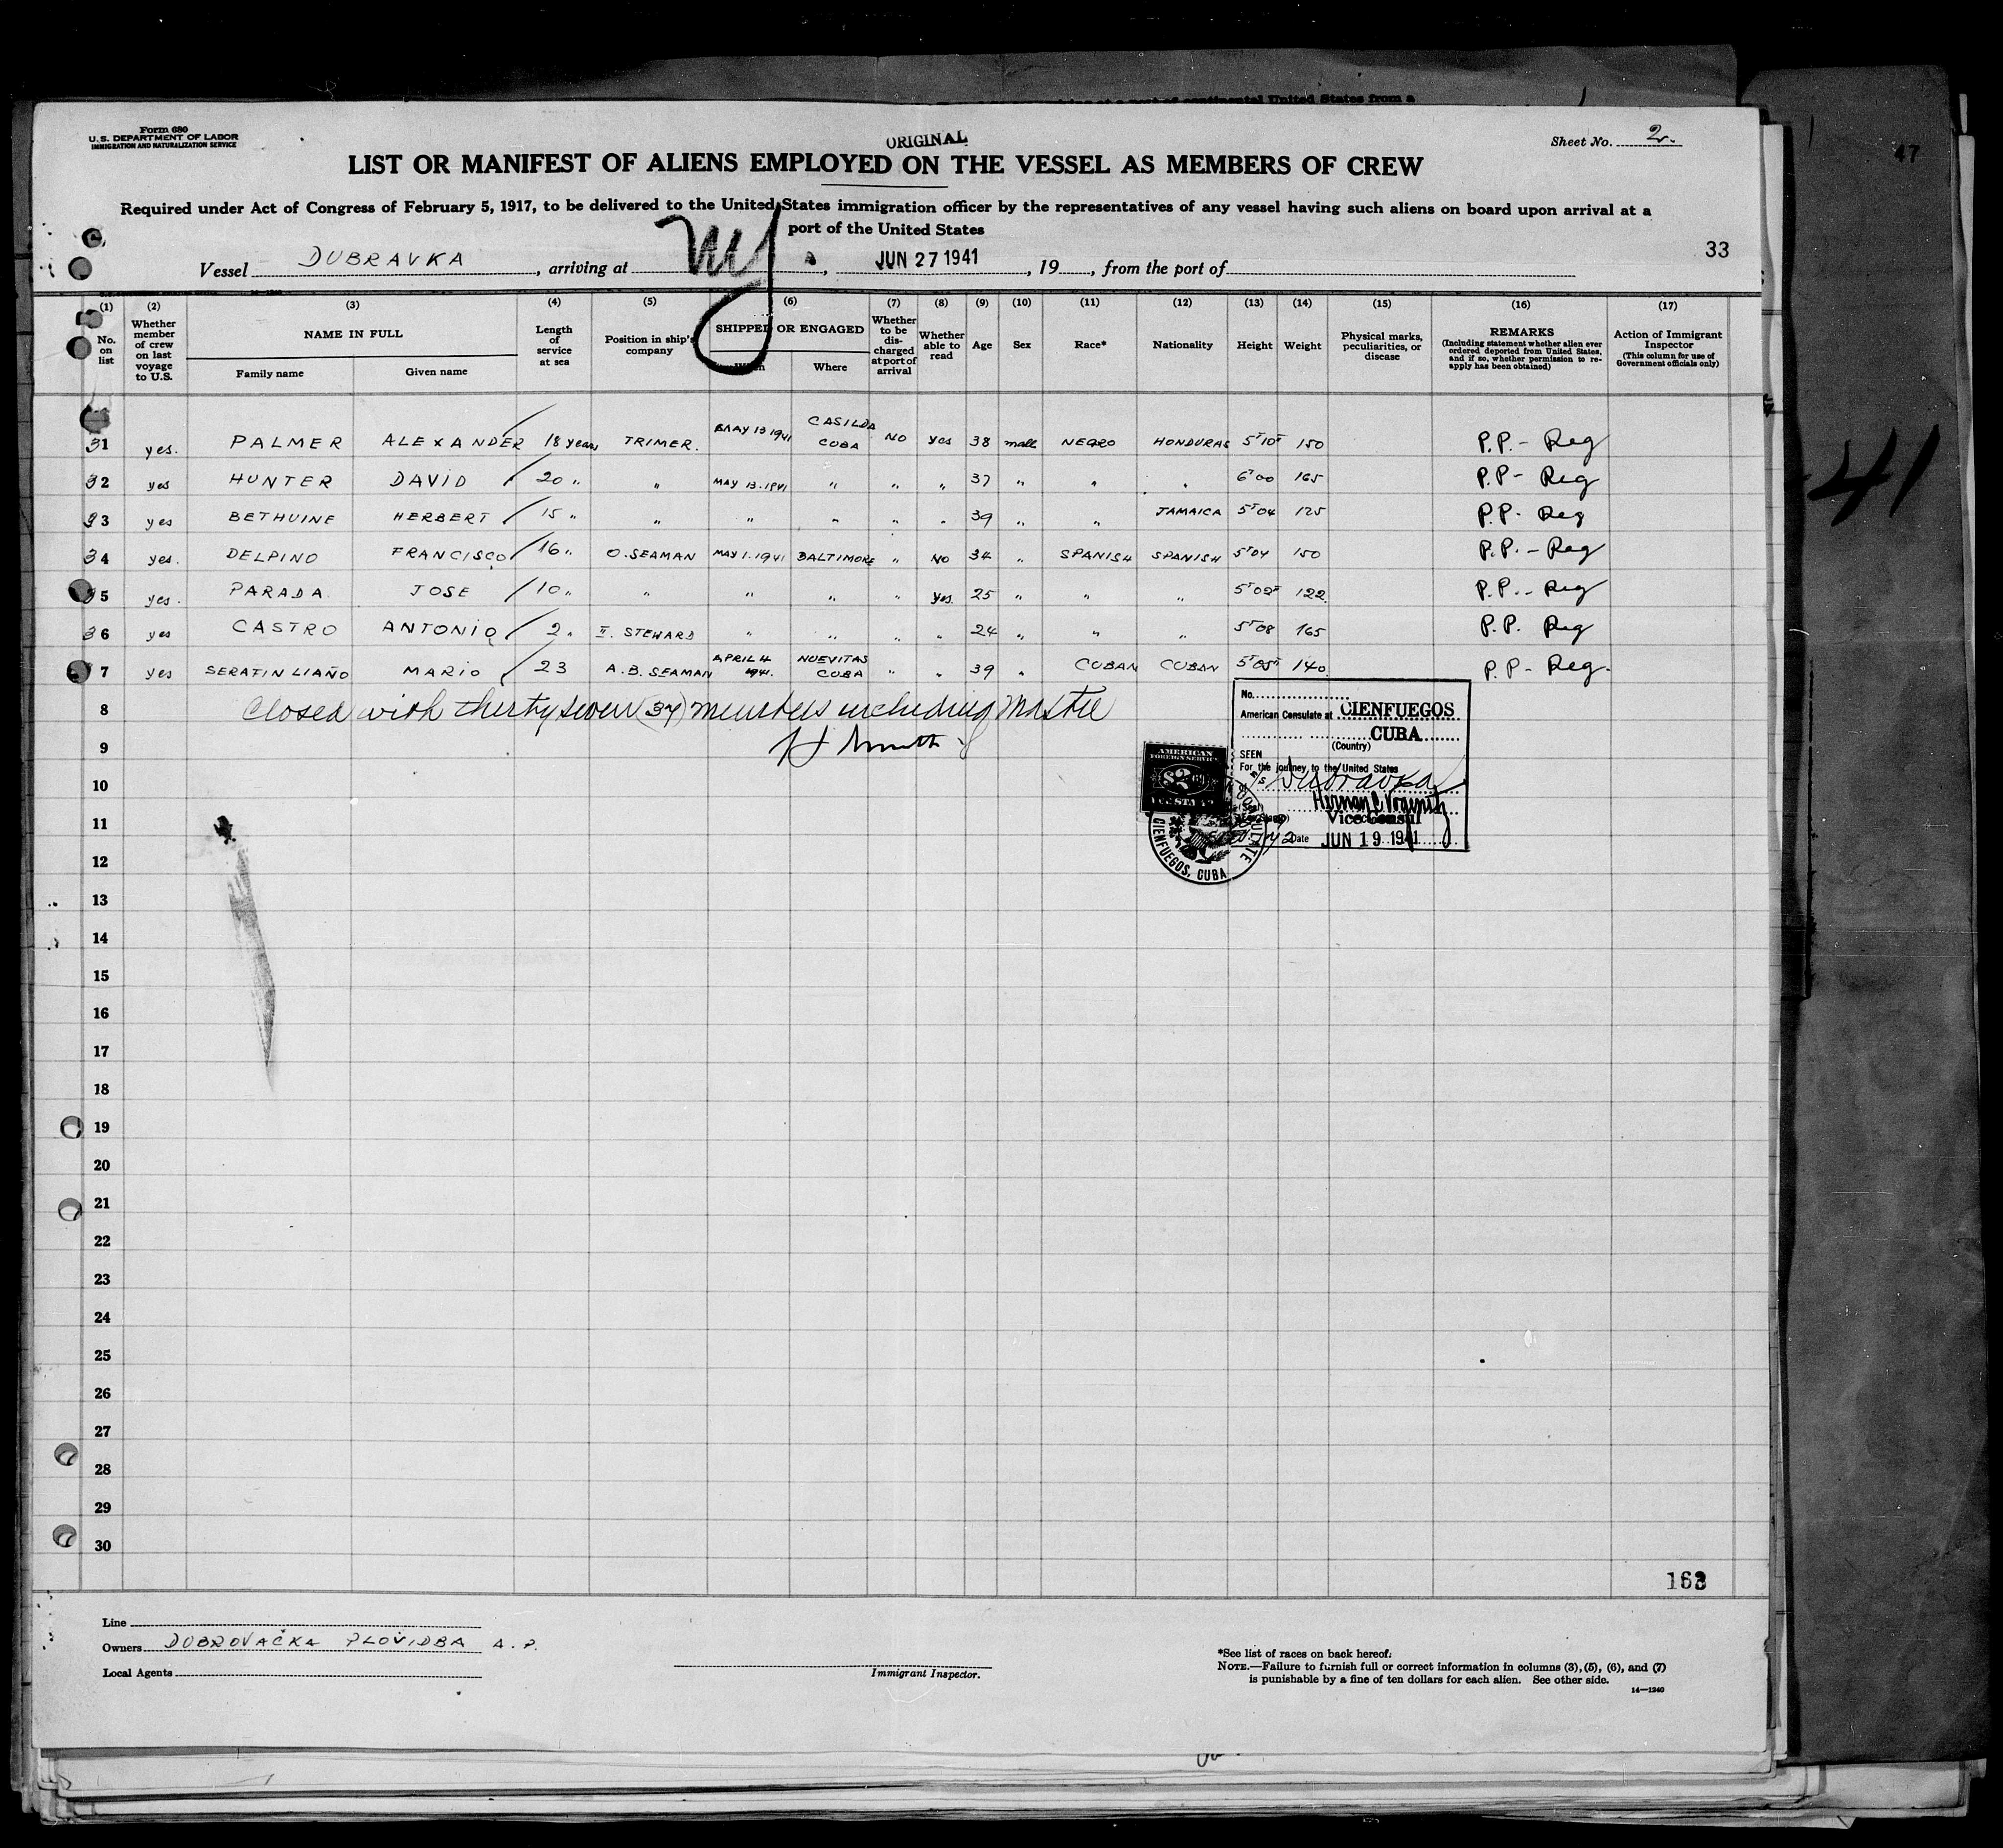 Form 680
U. S. DEPARTMENT OF LABOR
IMMIGRATION AND NATURALIZATION SERVICE
ORIGINAL
Sheet No. 2.
47
LIST OR MANIFEST OF ALIENS EMPLOYED ON THE VESSEL AS MEMBERS OF CREW
Required under Act of Congress of February 5, 1917, to be delivered to the United States immigration officer by the representatives of any vessel having such aliens on board upon arrival at a
port of the United States
33
Vessel DUBRAVKA, arriving at NY, JUN 27 1941, 19, from the port of
(1) (2) (3) (4) (5) (6) (7) (8) (9) (10) (11) (12) (13) (14) (15) (16) (17)
No. on list
Whether member of crew on last voyage to U.S.
NAME IN FULL
Family name
Given name
Length of service at sea
Position in ship's company
SHIPPED OR ENGAGED
When
Where
Whether to be discharged at port of arrival
Whether able to read
Age
Sex
Race*
Nationality
Height
Weight
Physical marks, peculiarities, or disease
REMARKS
(Including statement whether alien ever ordered deported from United States, and if so, whether permission to reapply has been obtained)
Action of Immigrant Inspector
(This column for use of Government officials only)
31 yes. PALMER ALEXANDER 18 years TRIMER. MAY 13 1941 CASILDA CUBA NO yes 38 male NEGRO HONDURAS 5'10" 150 P.P. - Reg
32 yes HUNTER DAVID 20 " " MAY 13.1941 " " " 37 " " " 6'00 165 P.P - Reg
33 yes BETHUINE HERBERT 15 " " " " " " 39 " " JAMAICA 5'04 125 P.P. Reg
34 yes. DELPINO FRANCISCO 16 " O. SEAMAN MAY 1. 1941 BALTIMORE " NO 34 " SPANISH SPANISH 5'04 150 P.P. - Reg
35 yes. PARADA JOSE 10 " " " " " yes. 25 " " " 5'02" 122 P.P. - Reg
36 yes CASTRO ANTONIO 2 " II. STEWARD " " " " 24 " " " 5'08 165 P.P. Reg
37 yes SERATIN LIAÑO MARIO 23 A.B. SEAMAN APRIL 4 1941. NUEVITAS CUBA " " 39 " CUBAN CUBAN 5'05" 140 P.P - Reg.
8 Closed with thirty seven (37) members including Master
9
No.
American Consulate at CIENFUEGOS
CUBA
(Country)
SEEN
For the journey to the United States
M/S Dubravka
Vice Consul
Date JUN 19 1941
AMERICAN
FOREIGN SERVICE
$2
CIENFUEGOS, CUBA
10
11
12
13
14
15
16
17
18
19
20
21
22
23
24
25
26
27
28
29
30
41
Line
Owners DUBROVAČKA PLOVIDBA A. P.
Local Agents
Immigrant Inspector.
*See list of races on back hereof.
NOTE.—Failure to furnish full or correct information in columns (3), (5), (6), and (7)
is punishable by a fine of ten dollars for each alien. See other side.
14—1240